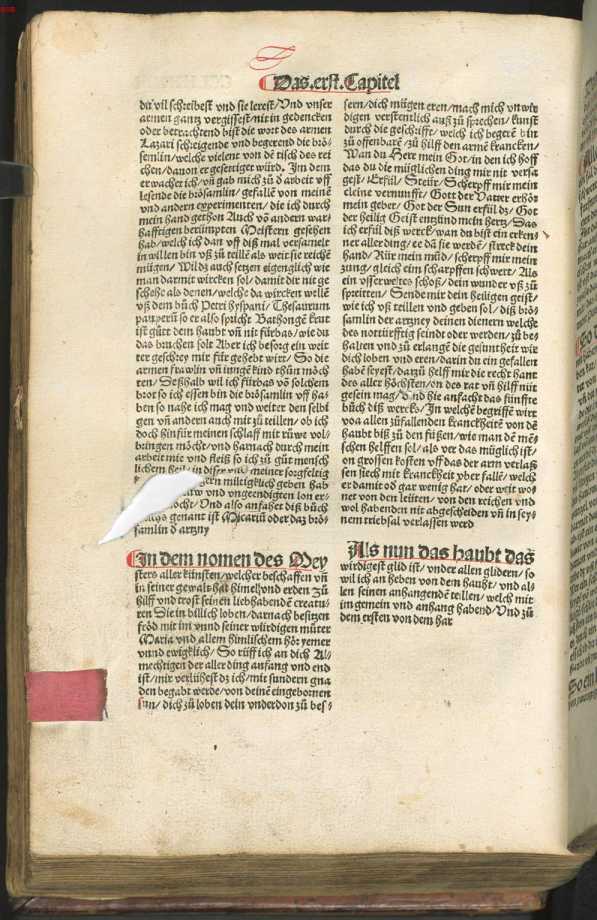 Das.erst.Capitel
dir vil schribest vnd sie lerest/Vnd vnser
armen gantz vergissest/nit in gedencken
oder betrachtend bist die wort des armen
Lazari schreigende vnd begerend die brö-
semlin/welche vielent von dē tisch des rei
chen/danon er gesettiget würd. Im dem
erwacher ich/vñ gab mich zů d arbeit vff
lesende die brösamlin/gefallē von meinē
vnd andern experimenten/die ich durch
mein hand gethon Auch vō andern war-
hafftigen berümpten Meistern gesehen
hab/welch ich dan vff diß mal versamelt
in willen bin vß zů teillē als weit sie reichē
mügen/Wil dz auch setzen eigenglich wie
man darmit wircken sol/damit dir nit ge
schehe als denen/welche da wircken wellē
vß dem bůch Petri hyspani/Thesaurum
pauperū so er also spricht Bathongē krut
ist gůt dem haubt vñ nit fürbas/wie du
das bruchen solt Aber ich besorg ein weit
ter geschrey mir für gehebt wirt/So die
armen frawlin vñ iungē kind thůn möch
ten/Deßhalb wil ich fürbas vō solchem
brot so ich essen bin die brösamlin vff ha-
ben so nahe ich mag vnd weiter den selbi
gen vñ andern auch mit zů teillen/ob ich
doch hin für meinen schlaff mit růwe vol-
bringen möcht/vnd harnach durch mein
arbeit mit vnd fleiß so ich zů gůt mensch
lichem heil/in diser vnd meiner sorgfeltig
miltigklich geben hab
vnd vngeendigten lon er-
möcht/Vnd also anfahet diß bůch
genant ist Micariū oder daz brö-
samlin d artzny
In dem nomen des Mey
sters aller künsten/welcher beschaffen vñ
in seiner gewalt hat himel vnd erden Zů
hilff vnd trost seinen liebhabendē creatu-
ren Die in billich loben/darnach besitzen
fröd mit im vnnd seiner würdigen můter
Maria vnd allem himlischem hör yemer
vnnd ewigklich/So rüff ich an dich Al-
mechtigen der aller ding anfang vnd end
ist/mir verlühest dz ich/mit sundern gna
den begabt werde/von deinē eingebornen
sun/dich zů loben dein vnderdon zů bes-
sern/dich mügen eren/mach mich vnwir
digen verstentlich auß zů sprechen/kunst
durch die geschrifft/welch ich begerē bin
zů offenbarē/zů hilff den armē krancken/
Wan du Herr mein Got/in den ich hoff
das du die müglichen ding mir nit versa
gest/Erfül/Steür/Scherpff mir mein
cleine vernunfft/Gott der Vatter erhör
mein gebet/Got der Sun erfül dz/Got
der heilig Geist entzünd mein hertz/Das
ich erfül diß werck/wan du bist ein erken-
ner aller ding/ee dā sie werdē/streck dein
hand/Rür mein můd/scherpff mir mein
zung/gleich ein scharpffen schwert/Als
ein vsserweltes schoß/dein wunder vß zů
spreitten/Sende mir dein heiligen geist/
wie ich vß teillen vnd geben sol/diß brö-
samlin der artzney deinen dienern welche
des notturfftig seindt oder werden/zů be-
halten vnd zů erlangē die gesuntheit wir
dich loben vnd eren/darin du ein gefallen
habē seyest/darzů helff mir die recht hant
des aller höchsten/on des rat vñ hilff nüt
gesein mag/Vnd hie anfacht das fünffte
bůch diß wercks/In welchē begriffē wirt
von allen zůfallenden kranckheitē von dē
haubt biß zů den füßen/wie man dē mē-
schen helffen sol/als ver das müglich ist/
on grossen kosten vff das der arm verlaß
sen siech mit kranckheit vber fallē/welch
er damit od gar wenig hat/oder weit wo
net von den leüten/von den reichen vnd
wol habenden nit abgescheiden vñ in sey-
nem triebsal verlassen werd
Als nun das haubt das
wirdigest glid ist/vnder allen glidern/so
wil ich an heben von dem haubt/vnd al-
len seinen anhangendē teillen/welch mit
im gemein vnd anhang habend/Vnd zů
dem ersten von dem har